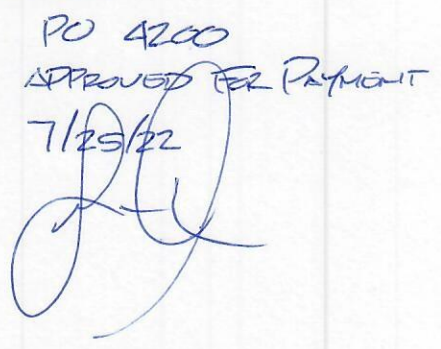 PO 4200
APPROVED FOR PAYMENT
7/25/22